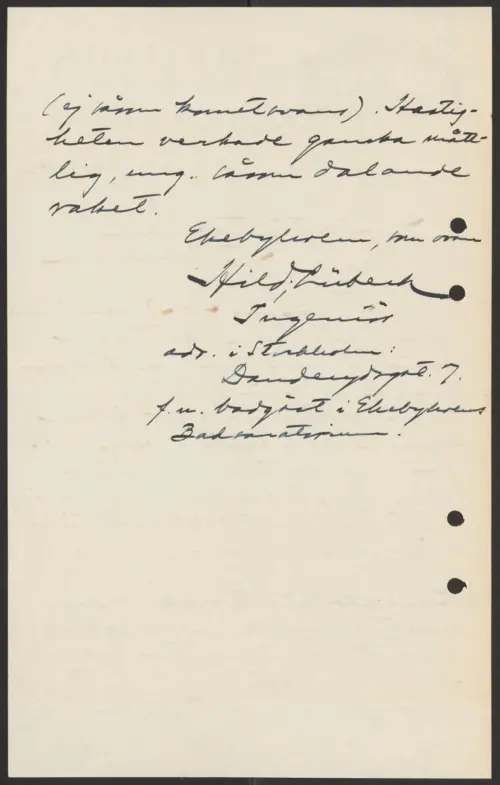 (ej såsom kometsvans). Hastig-
heten verkade ganska mått-
lig, ung. såsom dalande
raket.
Ekebyholm, som ovan
Hild. Lübeck
Ingeniör
adr. i Stockholm:
Danderydsgat. 7.
f. n. badgäst i Ekebyholms
Badsanatorium.